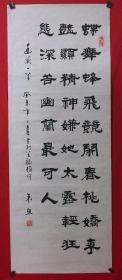 蝶舞蜂飛競鬧春桃嬌李
豔顯精神嫌她太露輕狂
態深谷幽蘭最可人
癸未年